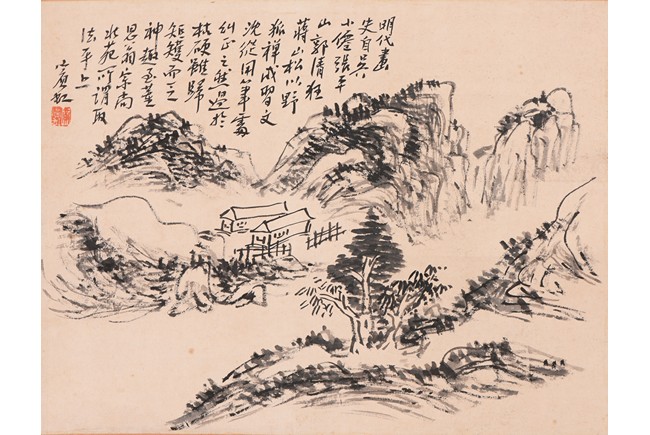 明代畫
史自吳
小僊張平
山郭清狂
蔣山松以野
狐禪成習文
沈從用筆處
糾正之然過於
枯硬雖歸
矩矱而乏
神趣至董
思翁宗尚
北苑所謂取
法乎上
賓虹